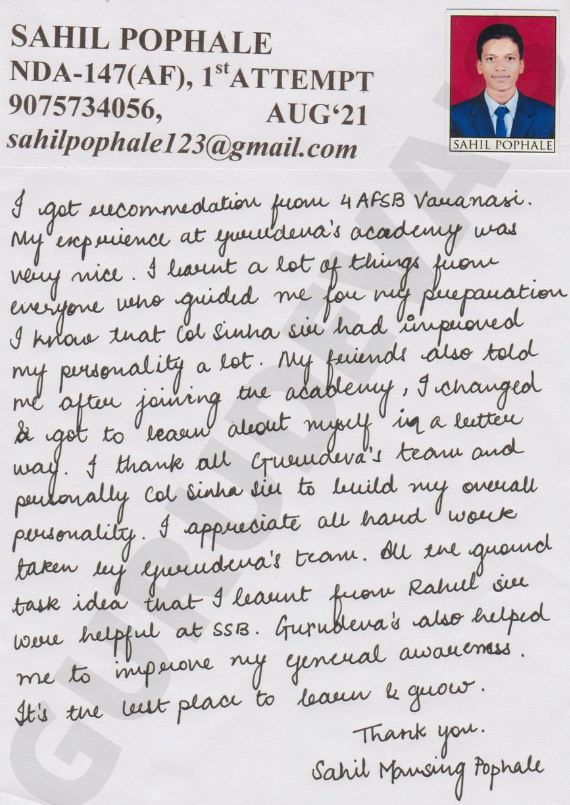 SAHIL POPHALE
NDA-147(AF), 1st ATTEMPT
9075734056, AUG‘21
sahilpophale123@gmail.com
SAHIL POPHALE
I got recommedation from 4 AFSB Varanasi.
My experience at gurudeva's academy was
very nice. I learnt a lot of things from
everyone who guided me for my preparation
I know that Col Sinha Sir had improved
my personality a lot. My friends also told
me after joining the academy, I changed
& got to learn about myself in a better
way. I thank all Gurudeva's team and
personally Col Sinha Sir to build my overall
personality. I appreciate all hard work
taken by gurudeva's team. All the ground
task idea that I learnt from Rahul sir
were helpful at SSB. Gurudeva's also helped
me to improve my general awareness.
It's the best place to learn & grow.
Thank you.
Sahil Mansing Pophale
GURUDEVA